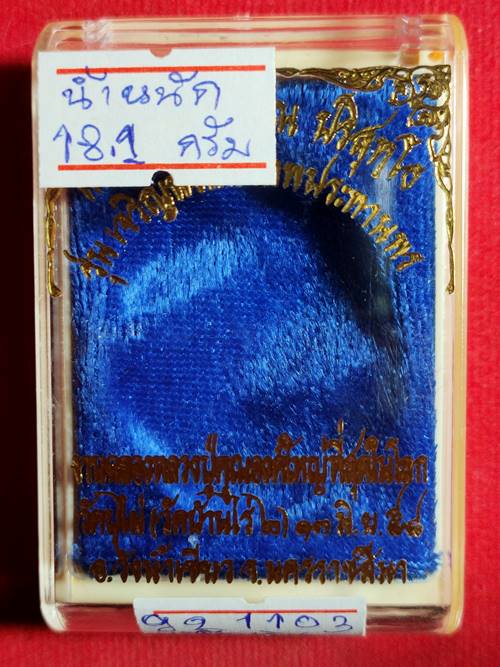 น้ำหนัก
18.1 กรัม
ปริสุทโธ
รุ่น เจริญ เทพประทานพร
งานฉลองหลวงปู่คูณองค์ใหญ่ที่สุดในโลก
วัดบุไผ่ (วัดบ้านไร่ ๒) ๑๓ มิ.ย. ๕๘
อ.วังน้ำเขียว จ.นครราชสีมา
1103